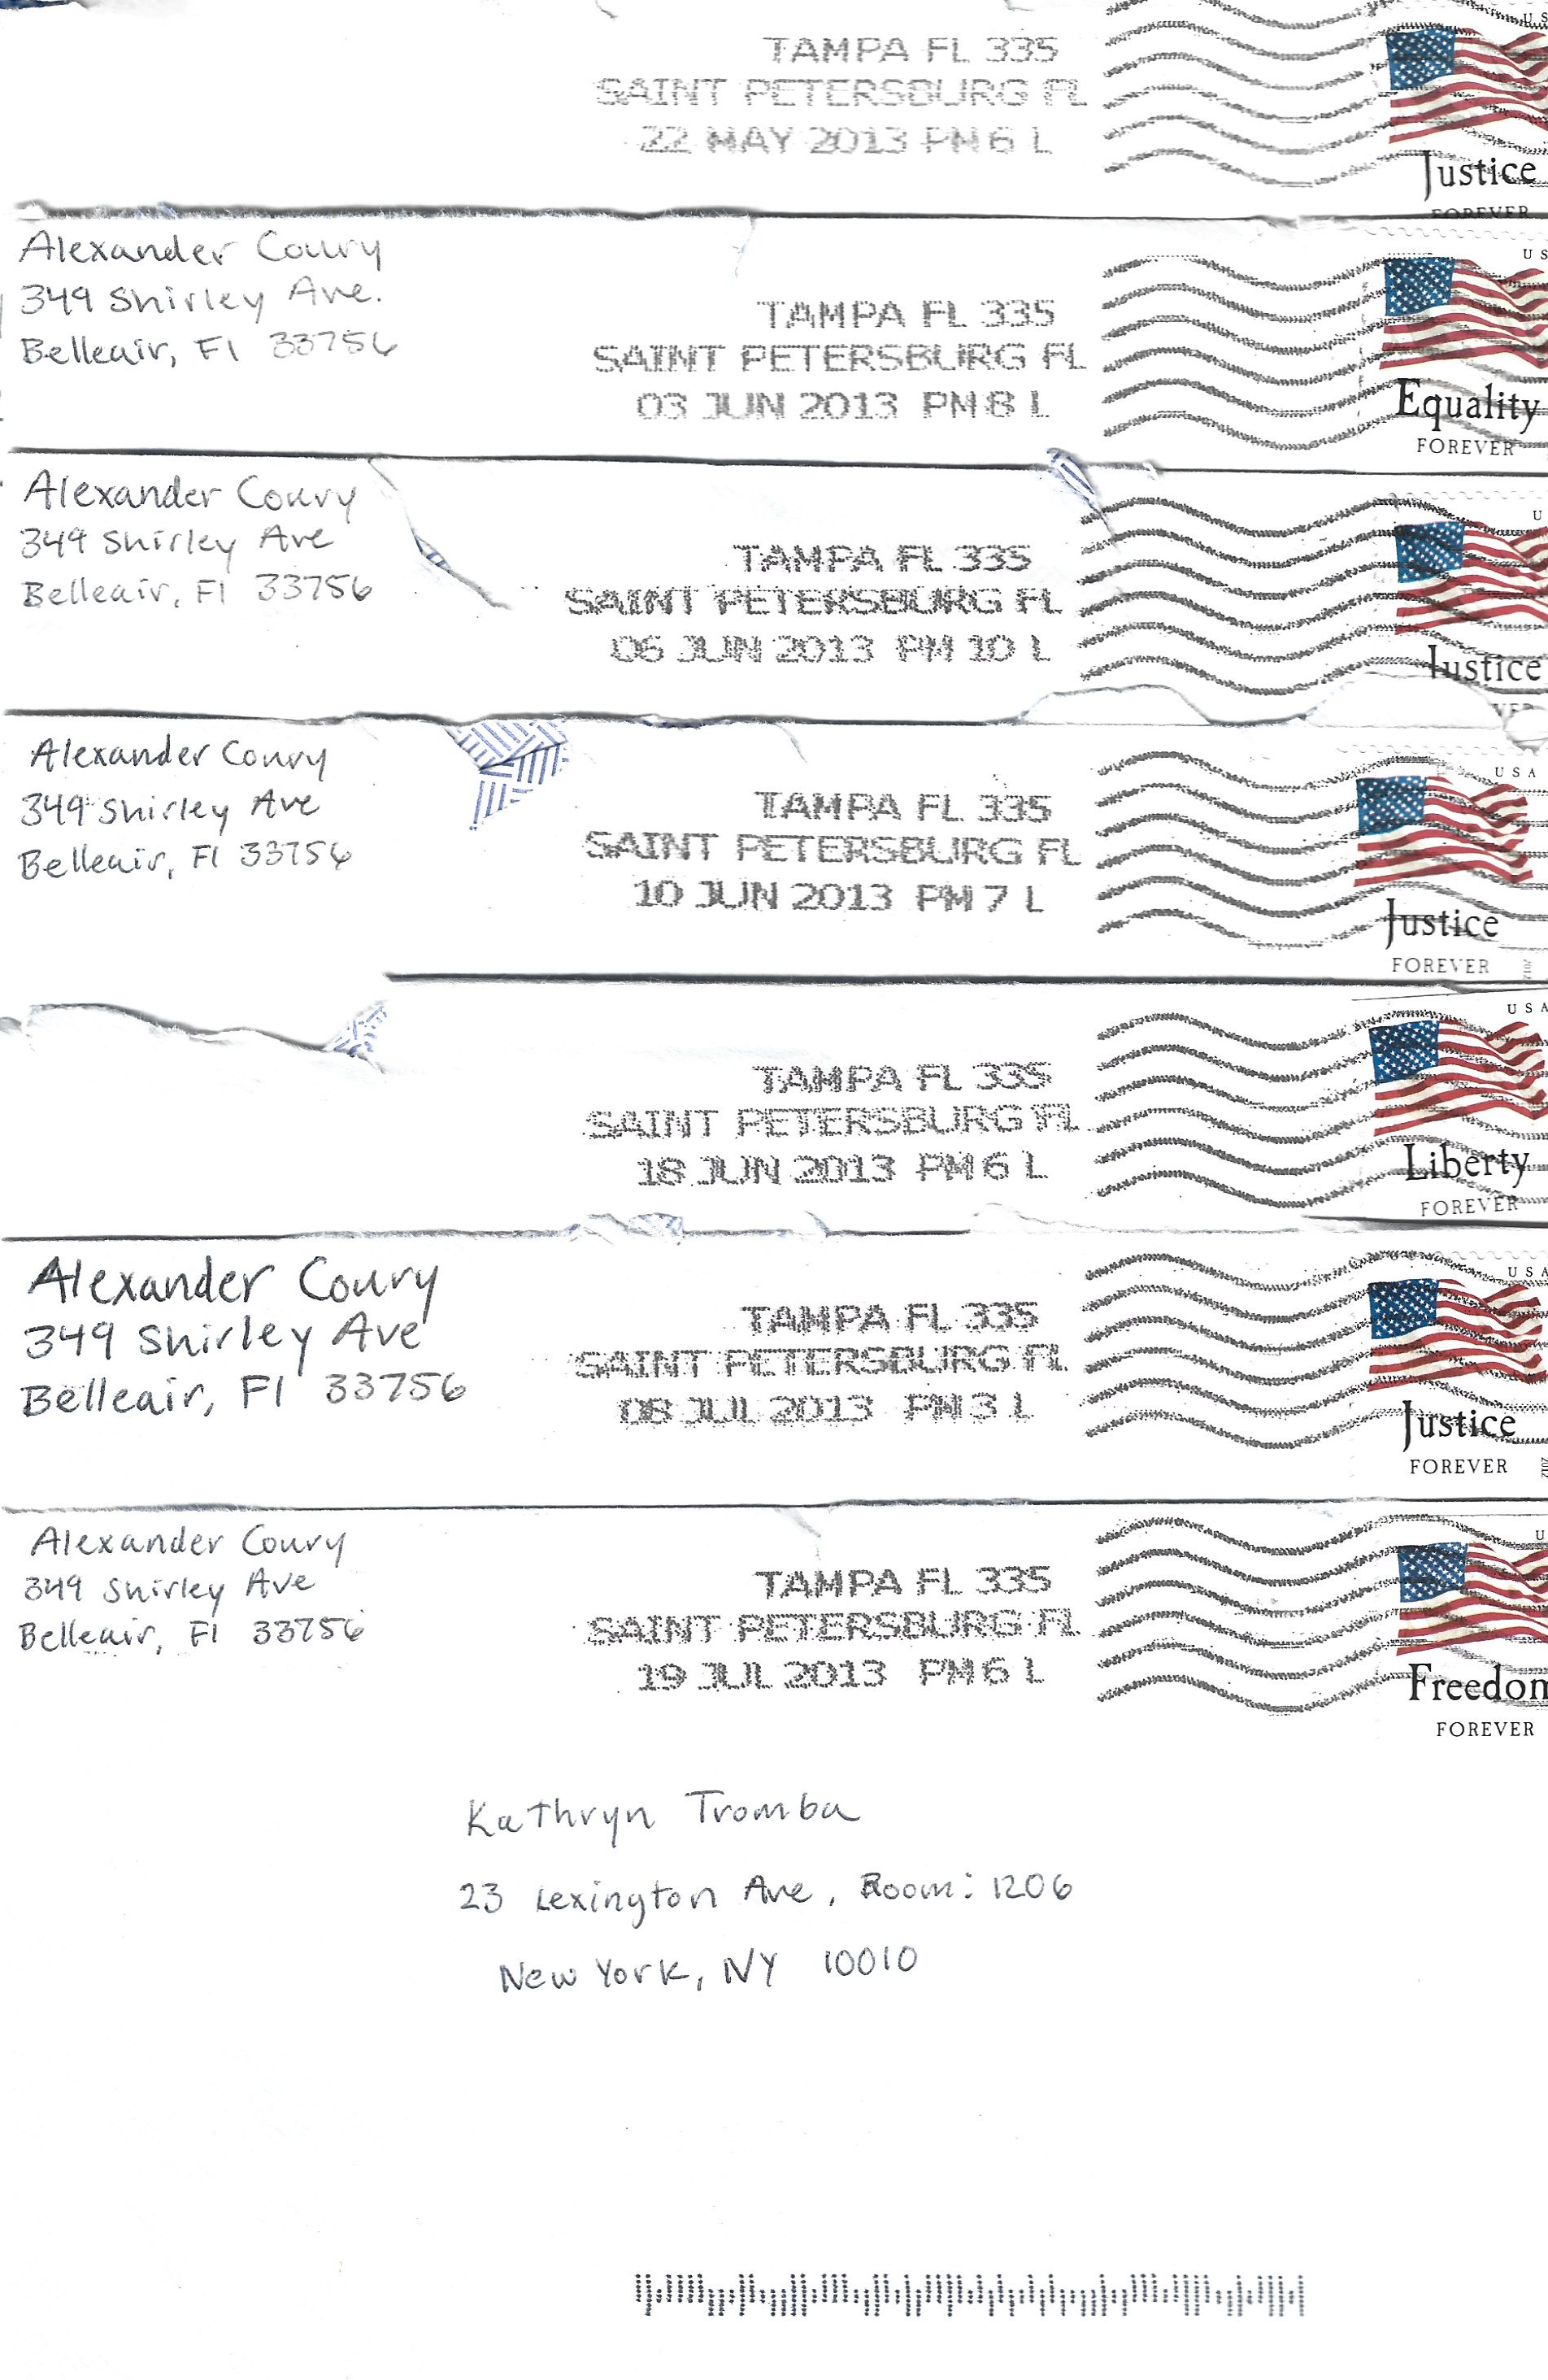 U S
TAMPA FL 335
SAINT PETERSBURG FL
22 MAY 2013 PM 6 L
Justice
FOREVER
Alexander Coury
349 Shirley Ave.
Belleair, Fl 33756
U S
TAMPA FL 335
SAINT PETERSBURG FL
03 JUN 2013 PM 8 L
Equality
FOREVER
Alexander Coury
349 Shirley Ave
Belleair, Fl 33756
U
TAMPA FL 335
SAINT PETERSBURG FL
06 JUN 2013 PM 10 L
Justice
VER
Alexander Coury
349 Shirley Ave
Belleair, Fl 33756
USA
TAMPA FL 335
SAINT PETERSBURG FL
10 JUN 2013 PM 7 L
Justice
FOREVER
2012
USA
TAMPA FL 335
SAINT PETERSBURG FL
18 JUN 2013 PM 6 L
Liberty
FOREVER
Alexander Coury
349 Shirley Ave
Belleair, Fl 33756
USA
TAMPA FL 335
SAINT PETERSBURG FL
08 JUL 2013 PM 3 L
Justice
FOREVER
2012
Alexander Coury
349 Shirley Ave
Belleair, Fl 33756
U
TAMPA FL 335
SAINT PETERSBURG FL
19 JUL 2013 PM 6 L
Freedom
FOREVER
Kathryn Tromba
23 Lexington Ave, Room: 1206
New York, NY 10010